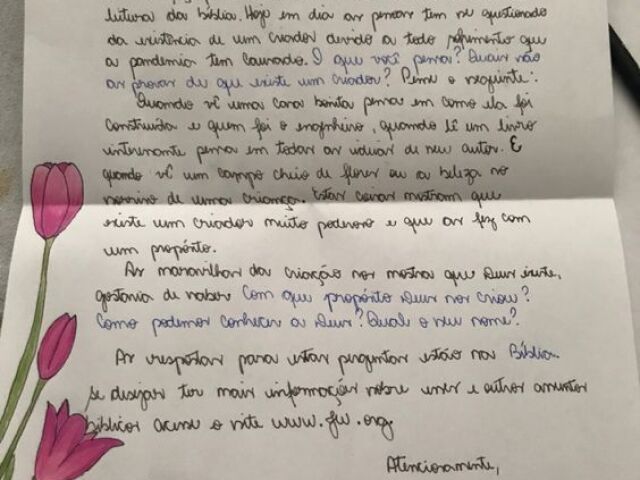 leitura da bíblia. Hoje em dia as pessoas tem se questionado
da existência de um criador devido a todo sofrimento que
a pandemia tem causado. O que você pensa? Quais são
as provas de que existe um criador? Pense o seguinte:
Quando vê uma casa bonita pensa em como ela foi
construída e quem foi o engenheiro, quando lê um livro
interessante pensa em todas as ideias de seu autor. E
quando vê um campo cheio de flores ou a beleza no
sorriso de uma criança. Estas coisas mostram que
existe um criador muito poderoso e que as fez com
um propósito.
As maravilhas da criação nos mostra que Deus existe,
gostaria de saber com que propósito Deus nos criou?
Como podemos conhecer a Deus? Qual o seu nome?
As respostas para estas perguntas estão na Bíblia.
Se desejar ter mais informações sobre esses e outros assuntos
bíblicos acesse o site www.jw.org.
Atenciosamente,